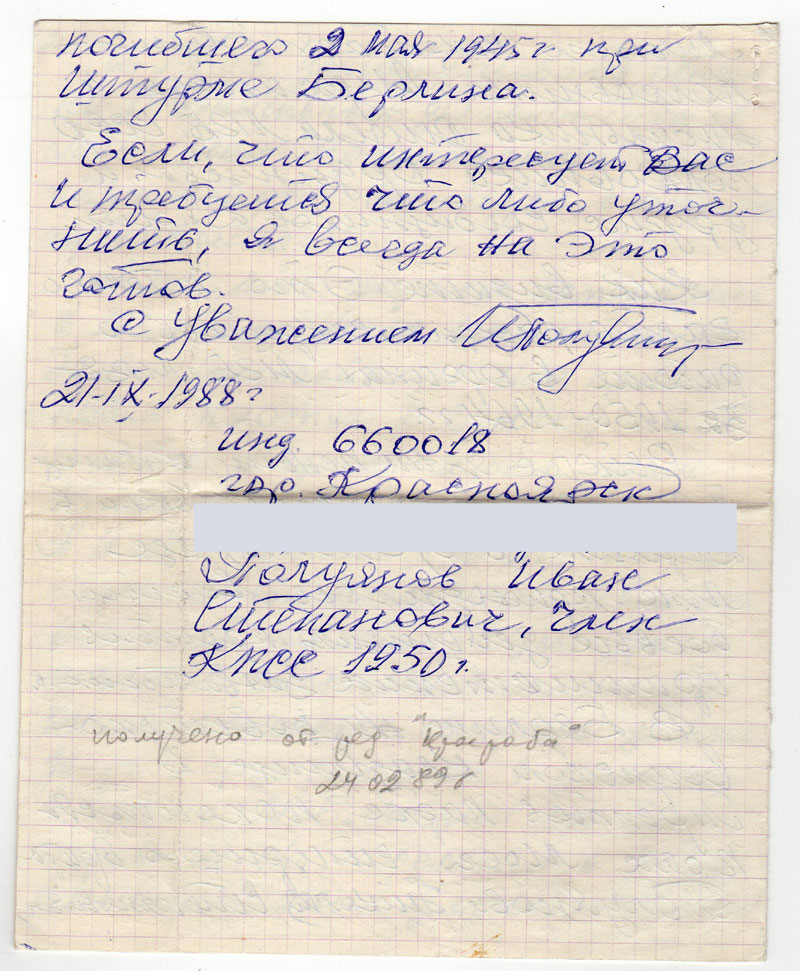 погибшего 2 мая 1945г при
штурме Берлина.
Если, что интересует Вас
и требуется что либо уточ-
нить, я всегда на это
готов.
С уважением ИПолуянов
21-IX-1988г
инд. 660018
гор. Красноярск
Полуянов Иван
Степанович, член
КПСС 1950г.
получено от ред "Красраба"
24 02 89г